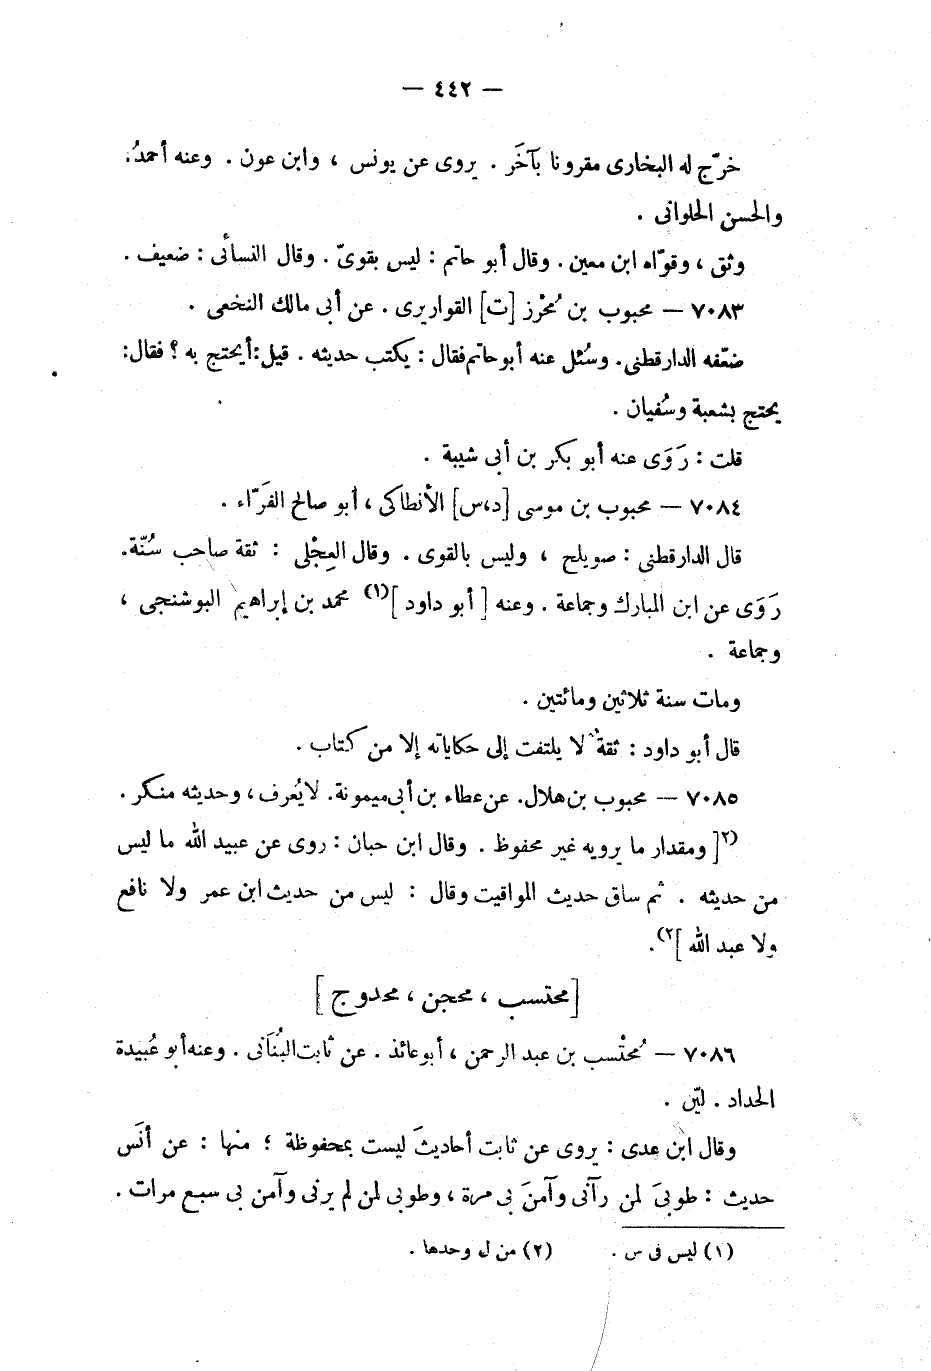 — ٤٤٢ —
خرّج له البخارى مقرونا بآخَر . يروى عن يونس ، وابن عون . وعنه أحمدُ،
والحسن الحلوانى .
وثق ، وقوّاه ابن معين . وقال أبو حاتم : ليس بقوىّ . وقال النسائى : ضعيف .
٧٠٨٣ — محبوب بن مُحْرز [ت] القواريرى . عن أبى مالك النخعى .
ضعّفه الدارقطنى . وسُئل عنه أبو حاتم فقال : يكتب حديثه . قيل : أيحتج به ؟ فقال :
يحتج بشعبة وسُفيان .
قلت : رَوَى عنه أبو بكر بن أبى شيبة .
٧٠٨٤ — محبوب بن موسى [د،س] الأنطاكى ، أبو صالح الفَرّاء .
قال الدارقطنى : صويلح ، وليس بالقوى . وقال العِجْلى : ثقة صاحب سُنّة.
رَوَى عن ابن المبارك وجماعة . وعنه [ أبو داود ](١) محمد بن إبراهيم البوشنجى ،
وجماعة .
ومات سنة ثلاثين ومائتين .
قال أبو داود : ثقة لا يلتفت إلى حكاياته إلا من كتاب .
٧٠٨٥ — محبوب بن هلال. عن عطاء بن أبى ميمونة. لا يُعرف ، وحديثه منكر .
(٢[ ومقدار ما يرويه غير محفوظ . وقال ابن حبان : روى عن عبيد الله ما ليس
من حديثه . ثم ساق حديث المواقيت وقال : ليس من حديث ابن عمر ولا نافع
ولا عبد الله ]٢).
[ محتسب ، محجن ، محدوج ]
٧٠٨٦ — مُحْتسب بن عبد الرحمن ، أبو عائذ . عن ثابت البُنَانى . وعنه أبو عُبيدة
الحداد . ليّن .
وقال ابن عدى : يروى عن ثابت أحاديثَ ليست بمحفوظة ؛ منها : عن أنَس
حديث : طوبىَ لمن رآنى وآمنَ بى مرة ، وطوبى لمن لم يرنى وآمن بى سبع مرات .
(١) ليس فى س . (٢) من ل وحدها .